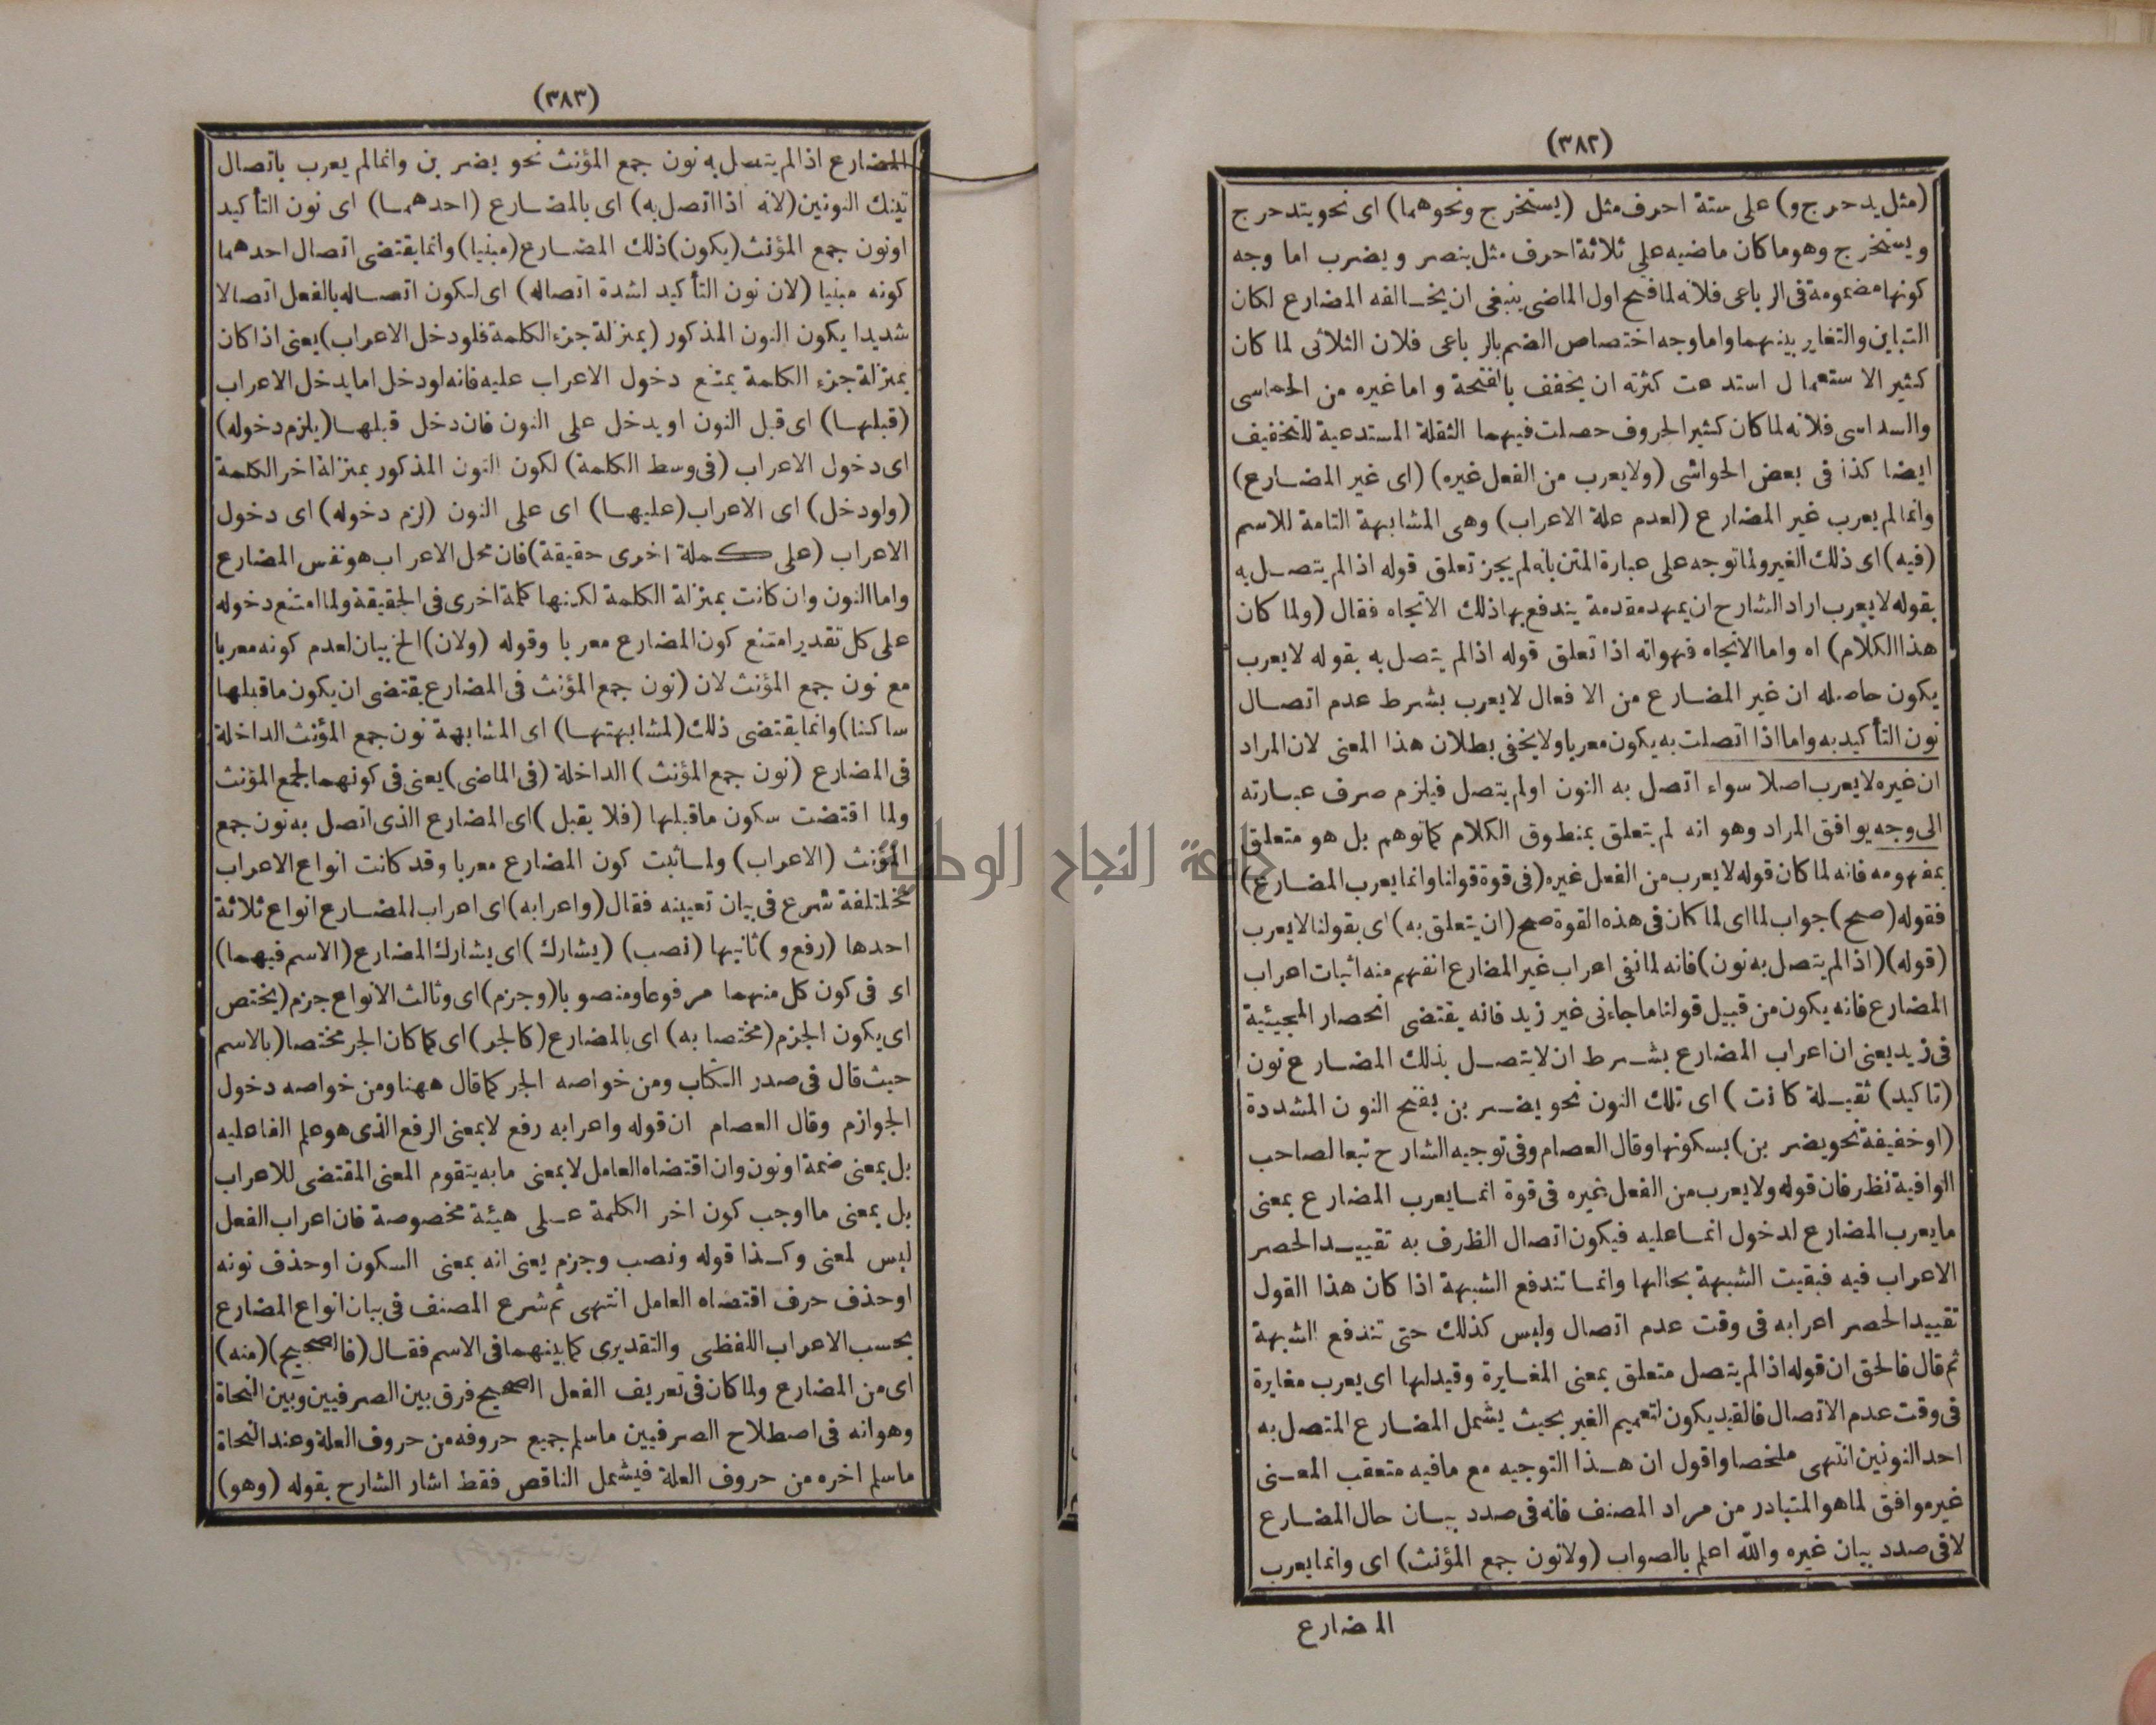 (٣٨٢)
(مثل يدحرج و) على ستة احرف مثل (يستخرج ونحوهما) اى نحو يتدحرج
ويستخرج وهو ما كان ماضيه على ثلاثة احرف مثل ينصر ويضرب اما وجه
كونها مضمومة فى الرباعى فلانه لما فتح اول الماضى ينبغى ان يخالفه المضارع لكان
التباين والتغاير بينهما واما وجه اختصاص الضم بالرباعى فلان الثلاثى لما كان
كثير الاستعمال استدعت كثرته ان يخفف بالفتحة واما غيره من الخماسى
والسداسى فلانه لما كان كثير الحروف حصلت فيهما الثقلة المستدعية للتخفيف
ايضا كذا فى بعض الحواشى (ولا يعرب من الفعل غيره) (اى غير المضارع)
وانما لم يعرب غير المضارع (لعدم علة الاعراب) وهى المشابهة التامة للاسم
(فيه) اى ذلك الغير ولما توجه على عبارة المتن بانه لم يجز تعلق قوله اذا لم يتصل به
بقوله لا يعرب اراد الشارح ان يمهد مقدمة يندفع بها ذلك الاتجاه فقال (ولما كان
هذا الكلام) اه واما الاتجاه فهو انه اذا تعلق قوله اذا لم يتصل به بقوله لا يعرب
يكون حاصله ان غير المضارع من الافعال لا يعرب بشرط عدم اتصال
نون التأكيد به واما اذا اتصلت به يكون معربا ولا يخفى بطلان هذا المعنى لان المراد
ان غيره لا يعرب اصلا سواء اتصل به النون او لم يتصل فيلزم صرف عبارته
الى وجه يوافق المراد وهو انه لم يتعلق بمنطوق الكلام كما توهم بل هو متعلق
بمفهومه فانه لما كان قوله لا يعرب من الفعل غيره (فى قوة قولنا وانما يعرب المضارع)
فقوله (صح) جواب لما اى لما كان فى هذه القوة صح (ان يتعلق به) اى بقولنا لا يعرب
(قوله) (اذا لم يتصل به نون) فانه لما نفى اعراب غير المضارع انفهم منه اثبات اعراب
المضارع فانه يكون من قبيل قولنا ما جاءنى غير زيد فانه يقتضى انحصار المجيئية
فى زيد يعنى ان اعراب المضارع بشرط ان لا يتصل بذلك المضارع نون
(تاكيد) ثقيلة كانت) اى تلك النون نحو يضربن بفتح النون المشددة
(او خفيفة نحو يضربن) بسكونها وقال العصام وفى توجيه الشارح تبعا لصاحب
الوافية نظر فان قوله ولا يعرب من الفعل غيره فى قوة انما يعرب المضارع بمعنى
ما يعرب المضارع لدخول انما عليه فيكون اتصال الظرف به تقييدا لحصر
الاعراب فيه فبقيت الشبهة بحالها وانما تندفع الشبهة اذا كان هذا القول
تقييدا لحصر اعرابه فى وقت عدم اتصال وليس كذلك حتى تندفع الشبهة
ثم قال فالحق ان قوله اذا لم يتصل متعلق بمعنى المغايرة وقيد لها اى يعرب مغايرة
فى وقت عدم الاتصال فالقيد يكون لتعميم الغير بحيث يشمل المضارع المتصل به
احد النونين انتهى ملخصا واقول ان هذا التوجيه مع مافيه متعقب المعنى
غير موافق لما هو المتبادر من مراد المصنف فانه فى صدد بيان حال المضارع
لا فى صدد بيان غيره والله اعلم بالصواب (ولا نون جمع المؤنث) اى وانما يعرب
المضارع
(٣٨٣)
المضارع اذا لم يتصل به نون جمع المؤنث نحو يضربن وانما لم يعرب باتصال
تينك النونين (لانه اذا اتصل به) اى بالمضارع (احدهما) اى نون التأكيد
او نون جمع المؤنث (يكون) ذلك المضارع (مبنيا) وانما يقتضى اتصال احدهما
كونه مبنيا (لان نون التأكيد لشدة اتصاله) اى لكون اتصاله بالفعل اتصالا
شديدا يكون النون المذكور (بمنزلة جزء الكلمة فلو دخل الاعراب) يعنى اذا كان
بمنزلة جزء الكلمة يمتنع دخول الاعراب عليه فانه لو دخل اما يدخل الاعراب
(قبلها) اى قبل النون او يدخل على النون فان دخل قبلها (يلزم دخوله)
اى دخول الاعراب (فى وسط الكلمة) لكون النون المذكور بمنزلة اخر الكلمة
(ولو دخل) اى الاعراب (عليها) اى على النون (لزم دخوله) اى دخول
الاعراب (على كلمة اخرى حقيقة) فان محل الاعراب هو نفس المضارع
واما النون وان كانت بمنزلة الكلمة لكنها كلمة اخرى فى الحقيقة ولما امتنع دخوله
على كل تقدير امتنع كون المضارع معربا وقوله (ولان) الخ بيان لعدم كونه معربا
مع نون جمع المؤنث لان (نون جمع المؤنث فى المضارع يقتضى ان يكون ما قبلها
ساكنا) وانما يقتضى ذلك (لمشابهتها) اى المشابهة نون جمع المؤنث الداخلة
فى المضارع (نون جمع المؤنث) الداخلة (فى الماضى) يعنى فى كونهما لجمع المؤنث
ولما اقتضت سكون ما قبلها (فلا يقبل) اى المضارع الذى اتصل به نون جمع
المؤنث (الاعراب) ولما ثبت كون المضارع معربا وقد كانت انواع الاعراب
مختلفة شرع فى بيان تعيينه فقال (واعرابه) اى اعراب المضارع انواع ثلاثة
احدها (رفع و) ثانيها (نصب) (يشارك) اى يشارك المضارع (الاسم فيهما)
اى فى كون كل منهما مرفوعا ومنصوبا (وجزم) اى وثالث الانواع جزم (يختص
اى يكون الجزم (مختصا به) اى بالمضارع (كالجر) اى كما كان الجر مختصا (بالاسم
حيث قال فى صدر الكتاب ومن خواصه الجر كما قال ههنا ومن خواصه دخول
الجوازم وقال العصام ان قوله واعرابه رفع لا بمعنى الرفع الذى هو علم الفاعليه
بل بمعنى ضمة او نون وان اقتضاه العامل لا بمعنى ما به يتقوم المعنى المقتضى للاعراب
بل بمعنى ما اوجب كون اخر الكلمة على هيئة مخصوصة فان اعراب الفعل
ليس لمعنى وكذا قوله ونصب وجزم يعنى انه بمعنى السكون او حذف نونه
او حذف حرف اقتضاه العامل انتهى ثم شرع المصنف فى بيان انواع المضارع
بحسب الاعراب اللفظى والتقديرى كما بينهما فى الاسم فقال (فالصحيح) (منه)
اى من المضارع ولما كان فى تعريف الفعل الصحيح فرق بين الصرفيين وبين النحاة
وهو انه فى اصطلاح الصرفيين ما سلم جميع حروفه من حروف العلة وعند النحاة
ما سلم اخره من حروف العلة فيشمل الناقص فقط اشار الشارح بقوله (وهو)
جامعة النجاح الوطنية